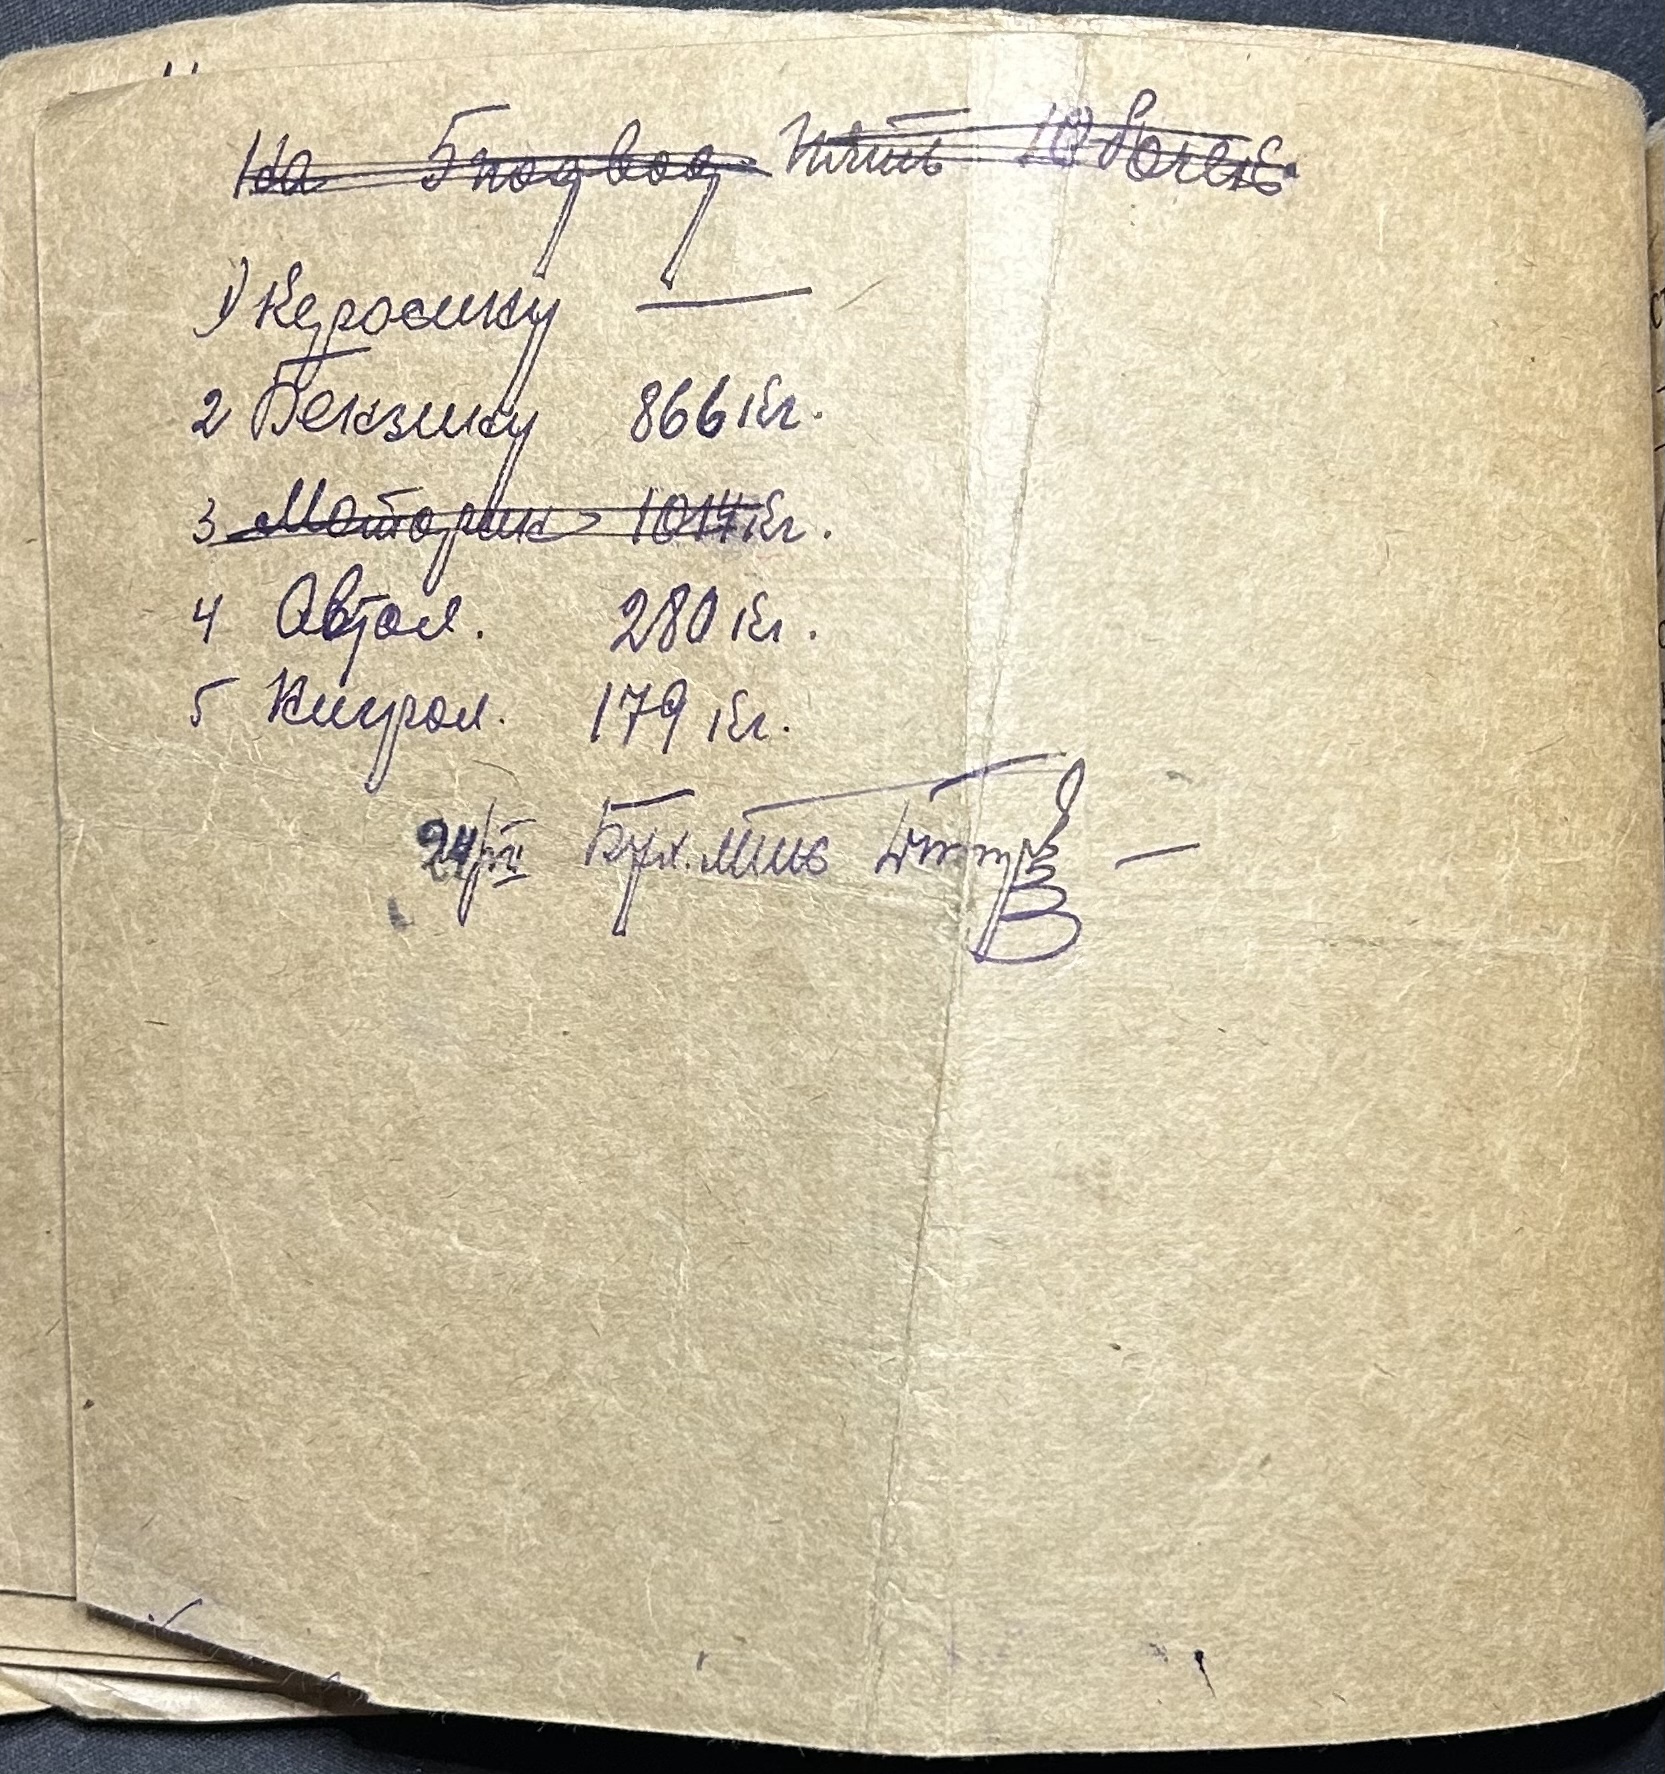 На 5 подвод 10 бочек.
1) Керосину —
2 Бензину 866 кг.
3 Моторин 1014 кг.
4 Автол. 280 кг.
5 Нигрол. 179 кг.
24/VI Бух. —